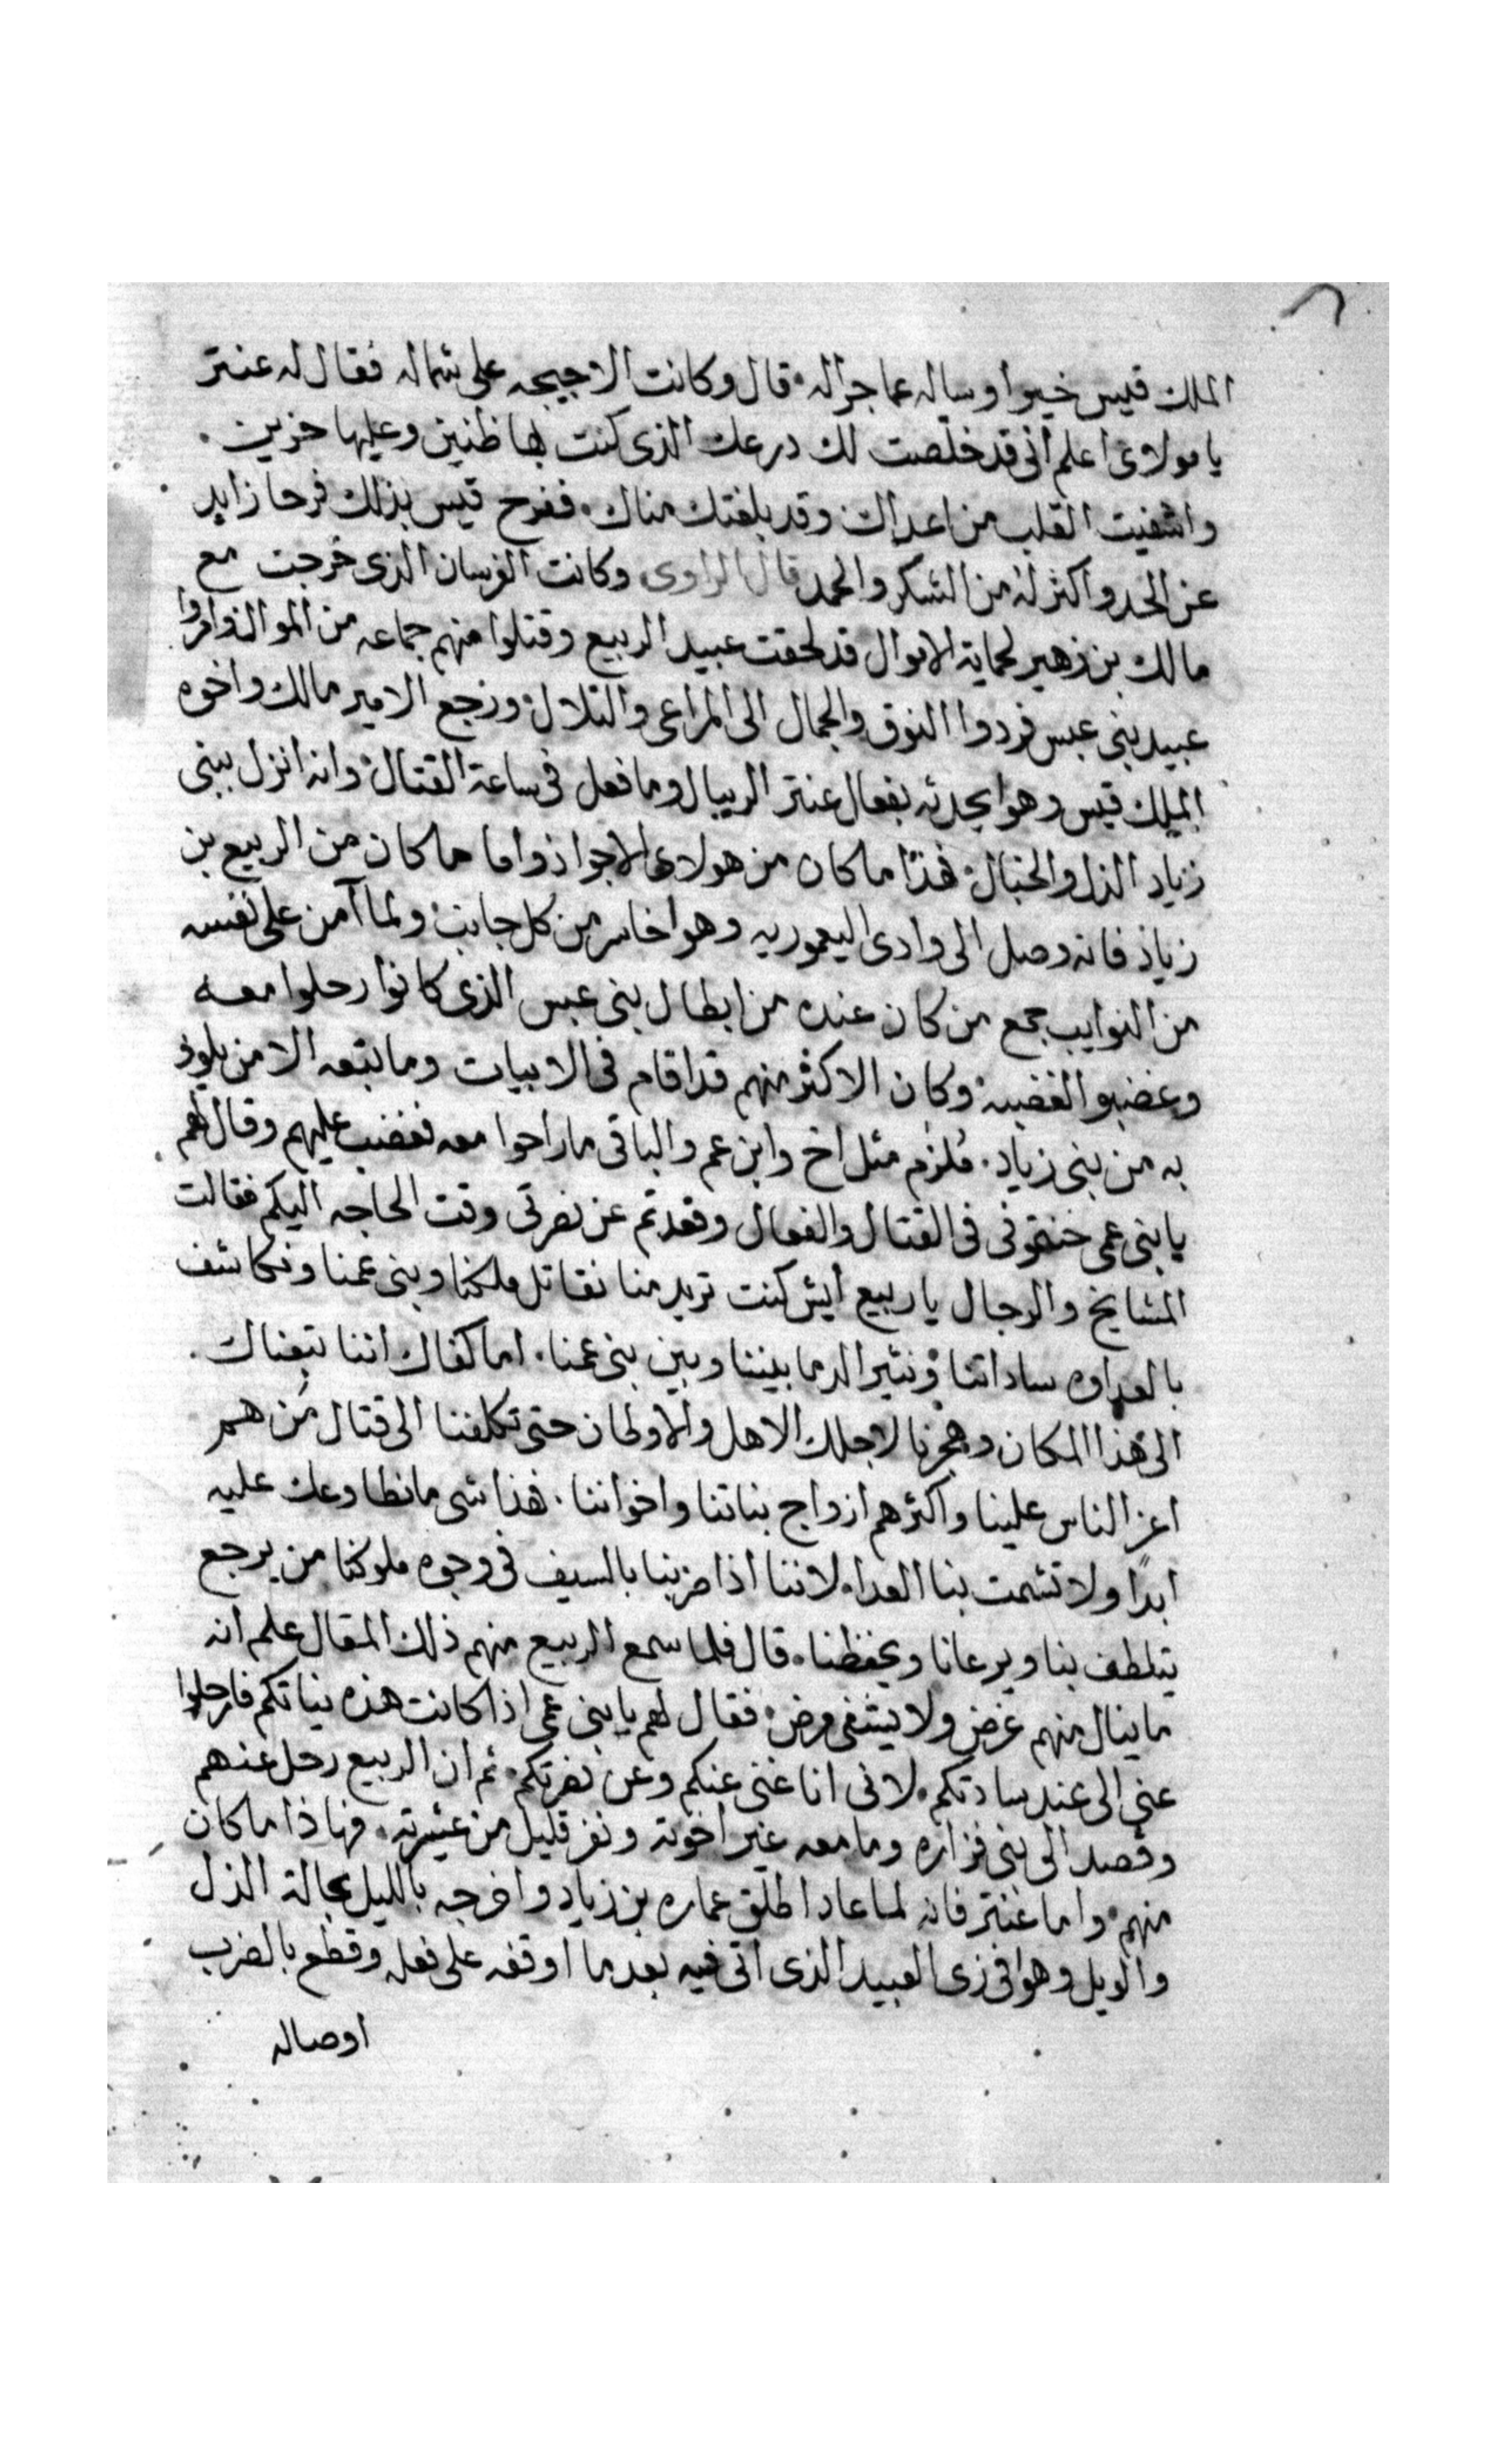 الملك قيس خيرا وساله عما جرا له قال وكانت الاجيحه على شماله فقال له عنتر
يا مولاى اعلم انى قد خلصت لك درعك الذى كنت بها ظنين وعليها حزين
واشفيت القلب من اعداك وقد بلغتك مناك ففرح قيس بذلك فرحا زايد
عن الحد واكثر له من الشكر والحمد قال الراوى وكانت الفرسان الذى خرجت مع
مالك بن زهير لحماية الاموال قد لحقت عبيد الربيع وقتلوا منهم جماعه من الموال وامروا
عبيد بنى عبس فردوا النوق والجمال الى المراعى والتلال ورجع الامير مالك واخوه
الملك قيس وهوا يحدثه بفعال عنتر الريبال وما فعل فى ساعة القتال وانه انزل ببنى
زياد الذل والخبال فهذا ما كان من هولاى الاجواد واما ما كان من الربيع بن
زياد فانه وصل الى وادى اليعموريه وهوا خاسر من كل جانب ولما آمن على نفسه
من النوايب جمع من كان عنده من ابطال بنى عبس الذى كانوا رحلوا معه
وغضبوا لغضبه وكان الاكثر منهم قد اقام فى الابيات وما تبعه الا من يلوذ
به من بنى زياد ملزم مثل اخ وابن عم والباقى ما راحوا معه فغضب عليهم وقال لهم
يا بنى عمى خنتونى فى القتال والفعال وقعدتم عن نصرتى وقت الحاجه اليكم فقالت
المشايخ والرجال يا ربيع أيش كنت تريد منا نقاتل ملكنا وبنى عمنا ونكاشف
بالعداوه ساداتنا ونثير الدما بيننا وبين بنى عمنا اما كفاك اننا تبعناك
الى هذا المكان وهجرنا لاجلك الاهل والاوطان حتى تكلفنا الى قتال من هم
اعز الناس علينا واكثرهم ازواج بناتنا واخواننا هذا شى ما نطاوعك عليه
ابدًا ولا تشمت بنا العدا لاننا اذا ضربنا بالسيف فى وجوه ملوكنا من يرجع
يتلطف بنا ويرعانا ويحفظنا قال فلما سمع الربيع منهم ذلك المقال علم انه
ما ينال منهم غرض ولا يشفى مرض فقال لهم يا بنى عمى اذا كانت هذه نياتكم فارحلوا
عنى الى عند سادتكم لانى انا غنى عنكم وعن نصرتكم ثم ان الربيع رحل عنهم
وقصد الى بنى فزاره وما معه غير اخوته ونفر قليل من عشيرته فهاذا ما كان
منهم واما عنتر فانه لما عاد اطلق عماره بن زياد واخرجه بالليل بحالة الذل
والويل وهوا فى زى العبيد الذى اتى فيه بعد ما اوقفه على فعله وقطع بالضرب
اوصاله